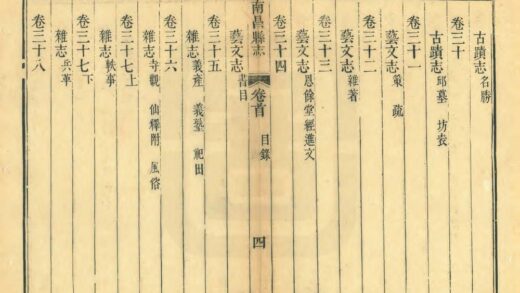 古蹟志 名勝
卷三十
古蹟志 邱墓 坊表
卷三十一
藝文志 疏
卷三十二
藝文志 雜著
卷三十三
藝文志 恩餘堂經進文
卷三十四
南昌縣志 卷首 目錄 四
藝文志 書目
卷三十五
雜志 義產 義塾 祀田
卷三十六
雜志 寺觀 仙釋附 風俗
卷三十七上
雜志 軼事
卷三十七下
雜志 兵革
卷三十八